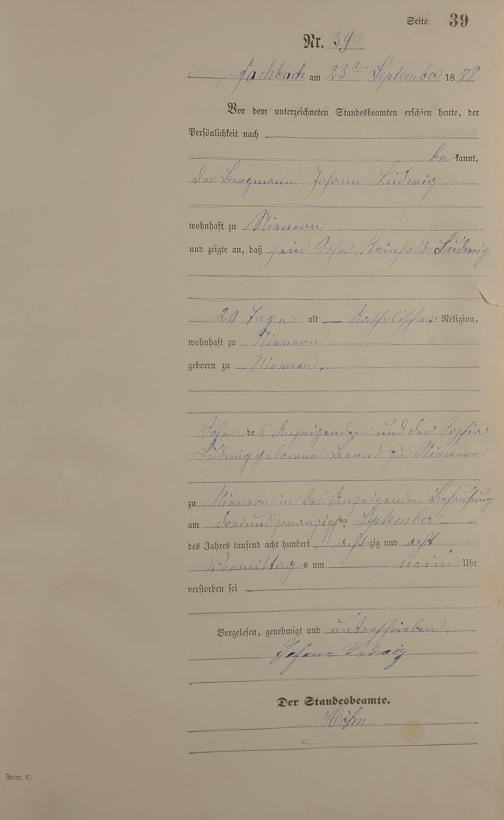 Seite 39
Nr. 39
Fachbach am 23ten September 1888
Vor dem unterzeichneten Standesbeamten erschien heute, der
Persönlichkeit nach
bekannt,
der Bergmann Johann Ludwig
wohnhaft zu Nievern
und zeigte an, daß sein Sohn Reinhold Ludwig
20 Tage alt katholischer Religion,
wohnhaft zu Nievern
geboren zu Nievern,
Sohn des Anzeigenden und der Sophia
Ludwig geborene zu Nievern
zu Nievern in des Anzeigenden Behausung
am dreiundzwanzigsten September
des Jahres tausend acht hundert achtzig und acht
Vormittags um neun Uhr
verstorben sei
Vorgelesen, genehmigt und unterschrieben.
Johann Ludwig
Der Standesbeamte.
Höhn
Form. C.